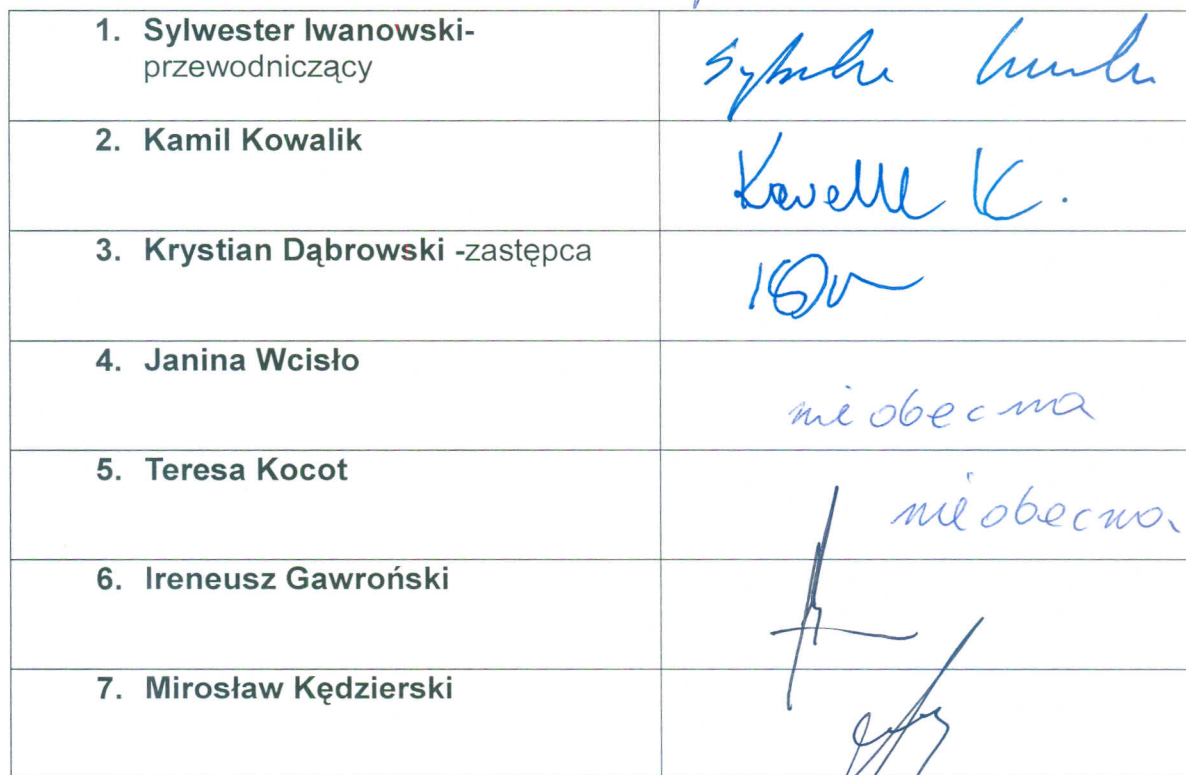 1. Sylwester Iwanowski-
przewodniczący
2. Kamil Kowalik
K.
3. Krystian Dąbrowski -zastępca
4. Janina Wcisło
nieobecna
5. Teresa Kocot
nieobecna
6. Ireneusz Gawroński
7. Mirosław Kędzierski